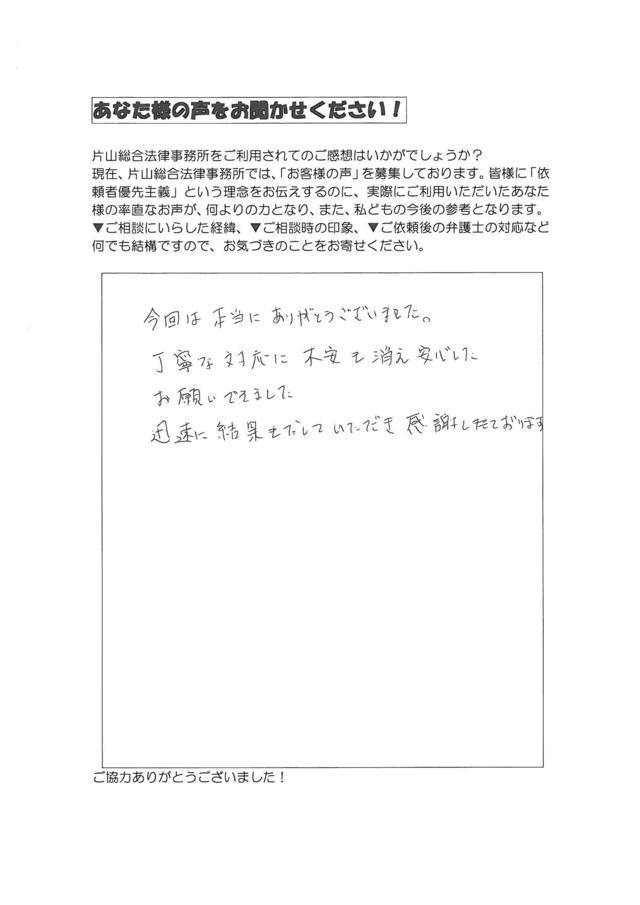 あなた様の声をお聞かせください！
片山総合法律事務所をご利用されてのご感想はいかがでしょうか？
現在、片山総合法律事務所では、「お客様の声」を募集しております。皆様に「依
頼者優先主義」という理念をお伝えするのに、実際にご利用いただいたあなた
様の率直なお声が、何よりの力となり、また、私どもの今後の参考となります。
▼ご相談にいらした経緯、▼ご相談時の印象、▼ご依頼後の弁護士の対応など
何でも結構ですので、お気づきのことをお寄せください。
今回は本当にありがとうございました。
丁寧な対応に不安も消え安心した
お願いできました
迅速に結果もだしていただき感謝したております
ご協力ありがとうございました！